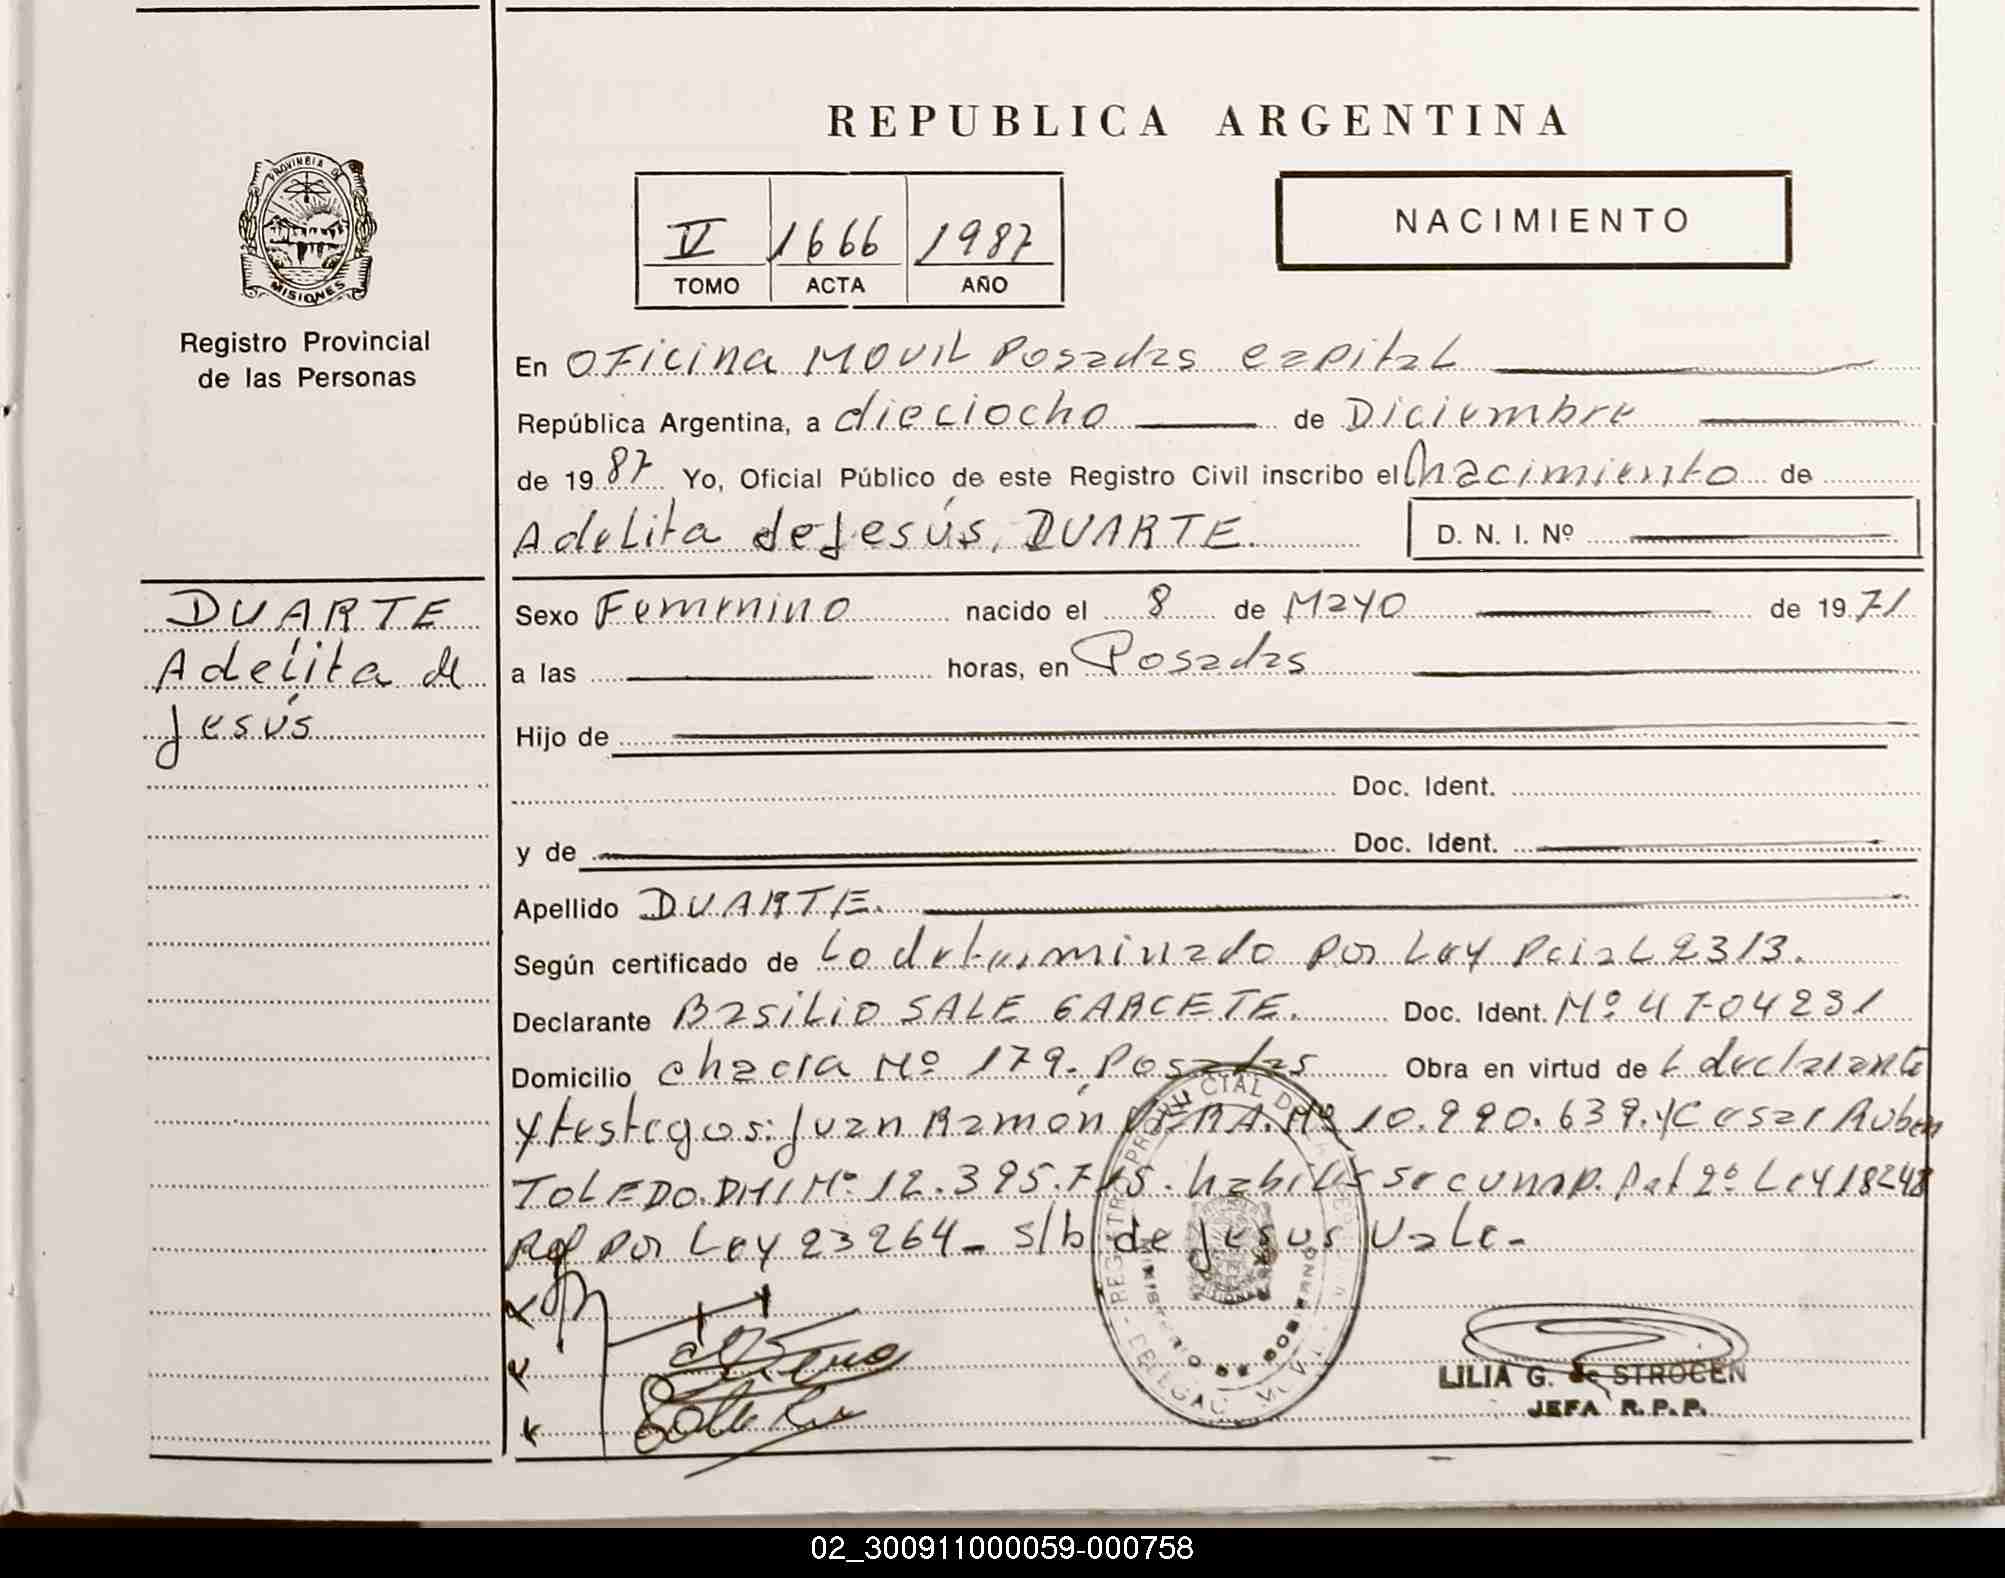 REPUBLICA ARGENTINA
PROVINCIA DE
MISIONES
Registro Provincial
de las Personas
V 1666 1987
TOMO ACTA AÑO
NACIMIENTO
En OFicina MOVIL Posadas capital
República Argentina, a dieciocho de Diciembre
de 1987 Yo, Oficial Público de este Registro Civil inscribo el nacimiento de
Adelita de Jesús, DUARTE. D. N. I. Nº
DUARTE
Adelita de
Jesús
Sexo Femenino nacido el 8 de Mayo de 1971
a las horas, en Posadas
Hijo de
Doc. Ident.
y de Doc. Ident.
Apellido DUARTE.
Según certificado de Lo determinado por Ley Pcial 2313.
Declarante Basilio SALE GARCETE. Doc. Ident. Nº 4704231
Domicilio chacra Nº 179. Posadas Obra en virtud de L declarante
y testigos: Juan Ramón VERA. Nº 10.990.639. y Cesar Ruben
TOLEDO. DNI Nº 12.395.715. habiles se cump. Art 2º Ley 18248
Ref por Ley 23264 - s/b de Jesus Vale -
MINISTERIO DE GOBIERNO
LILIA G. de STROCEN
JEFA R.P.P.
02_300911000059-000758